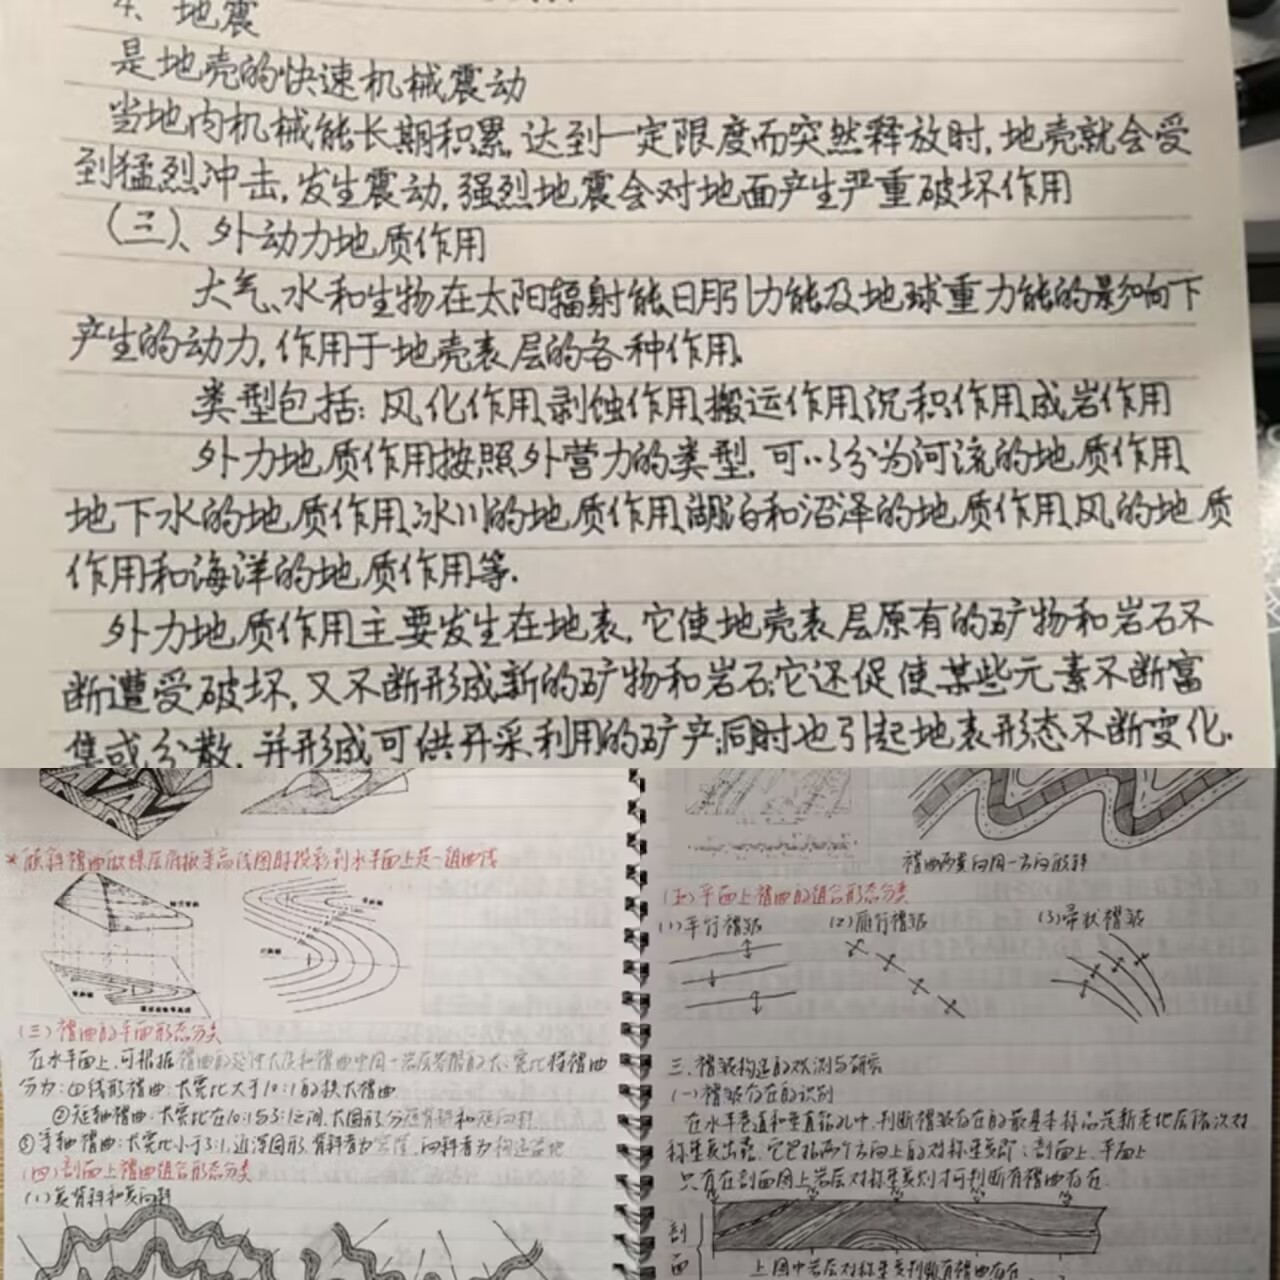 4、地震
是地壳的快速机械震动
当地内机械能长期积累,达到一定限度而突然释放时,地壳就会受
到猛烈冲击,发生震动,强烈地震会对地面产生严重破坏作用
(三)、外动力地质作用
大气、水和生物在太阳辐射能、日月引力能及地球重力能的影响下
产生的动力,作用于地壳表层的各种作用.
类型包括:风化作用、剥蚀作用、搬运作用、沉积作用、成岩作用
外力地质作用按照外营力的类型,可以分为河流的地质作用、
地下水的地质作用、冰川的地质作用、湖泊和沼泽的地质作用、风的地质
作用和海洋的地质作用等.
外力地质作用主要发生在地表,它使地壳表层原有的矿物和岩石不
断遭受破坏,又不断形成新的矿物和岩石;它还促使某些元素不断富
集或分散,并形成可供开采利用的矿产;同时也引起地表形态不断变化.
*倾斜褶曲故煤层底板等高线图时投影到水平面上是一组曲线
(三)褶曲的平面形态分类
在水平面上,可根据褶曲的延伸大度和褶曲中同一岩层的长、宽比将褶曲
分为:①线形褶曲:长宽比大于10:1的狭长褶曲
②短轴褶曲:长宽比在10:1与3:1之间,大图形分短背斜和短向斜
③等轴褶曲:长宽比小于3:1,近浑圆形,背斜者为穹窿,向斜者为构造盆地
(四)剖面上褶曲组合形态分类
(1)复背斜和复向斜
褶曲两翼向同一方向倾斜
(五)平面上褶曲的组合形态分类
(1)平行褶皱 (2)雁行褶皱 (3)帚状褶皱
三.褶皱构造的观测与研究
(一)褶皱存在的识别
在水平巷道和垂直钻孔中,判断褶皱存在的最基本标志是新老地层依次对
称重复出露.它包括两个方向上的对称重复即:剖面上、平面上
只有在剖面图上岩层对称重复则才可判断有褶曲存在.
剖
面
上图中岩层对称重复判断有褶曲存在